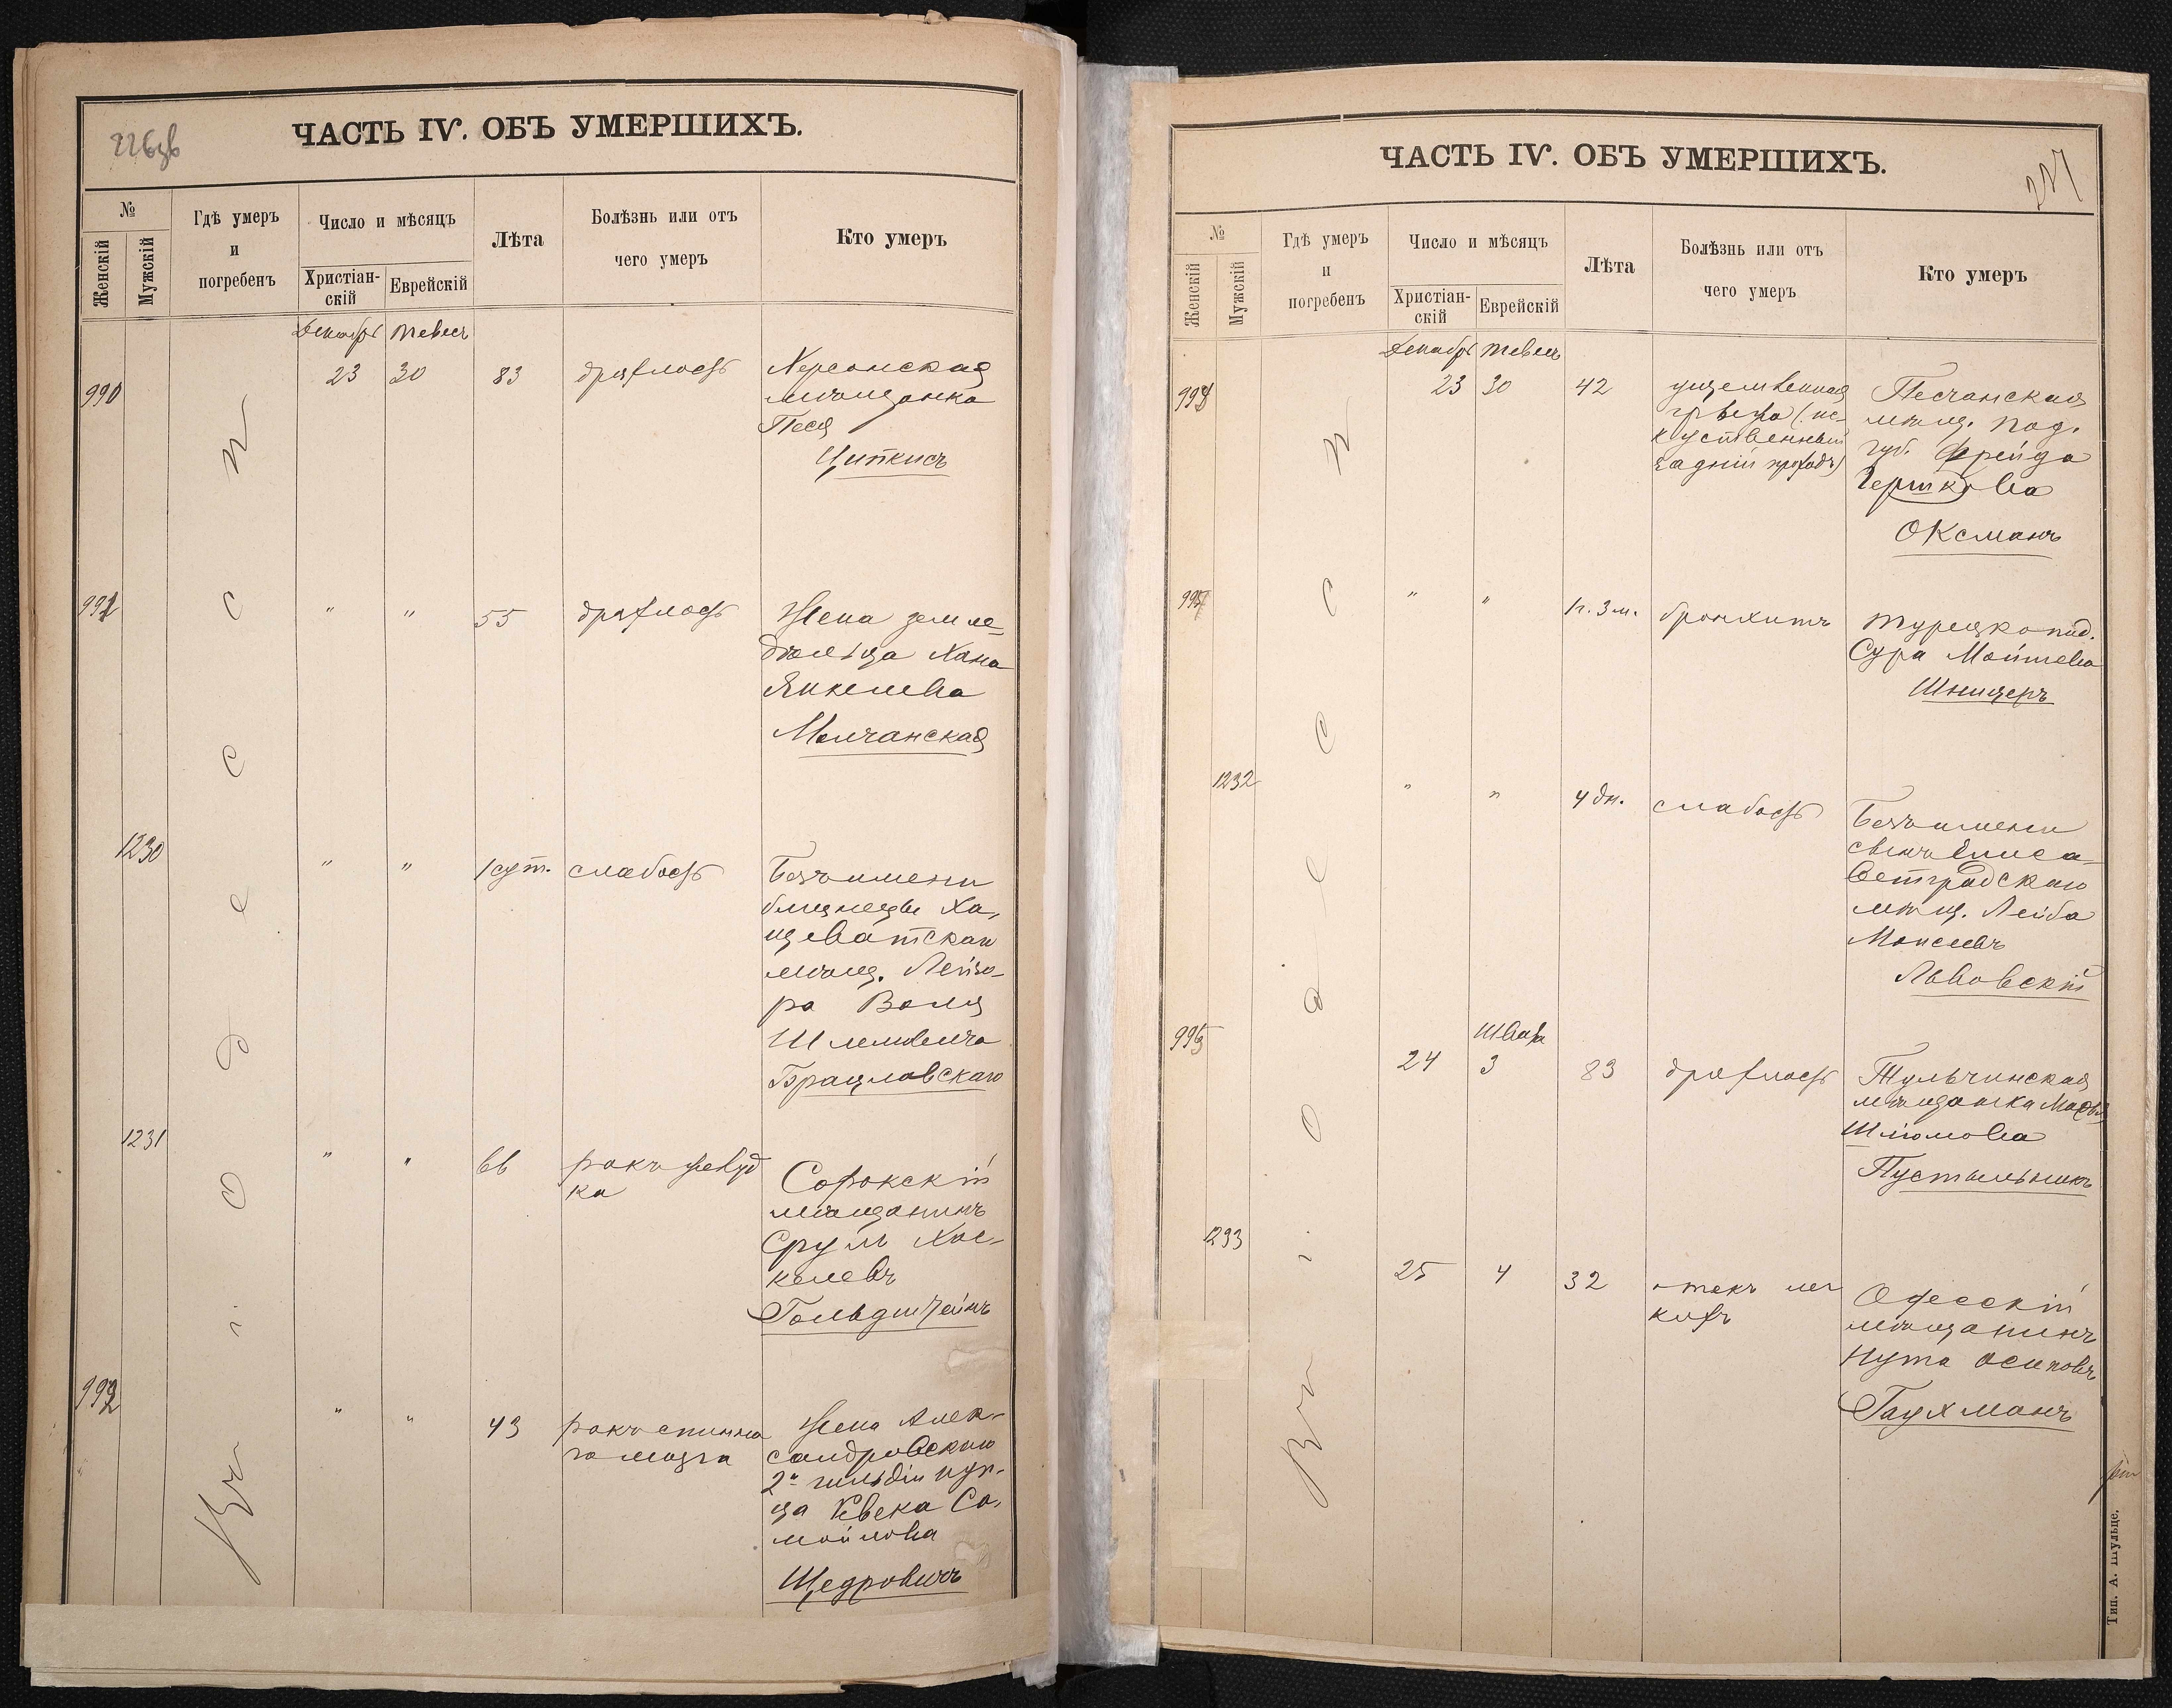 226 об
ЧАСТЬ IV. ОБЪ УМЕРШИХЪ.
№
Женскій
Мужскій
Гдѣ умеръ
и
погребенъ
Число и мѣсяцъ
Христіан-
скій
Еврейскій
Лѣта
Болѣзнь или отъ
чего умеръ
Кто умеръ
Въ Одессѣ
Декабрь Тевесъ
990 23 30 83 дряхлость Херсонская
мѣщанка
Песя
Ципкисъ
991 " " 55 дряхлость Жена земле-
дѣльца Хана
Янкелева
Молчанская
1230 " " 1 сут. слабость Безъ имени
близнецы Ха-
щеватскаго
мѣщ. Лейзо-
ра Воля
Шлемовича
Брацлавскаго
1231 " " 66 ракъ желуд
ка
Сорокскій
мѣщанинъ
Срулъ Хас-
келевъ
Гольдштейнъ
992 " " 43 ракъ спинна
го мозга
Жена Алек-
сандровскаго
2й гильдіи куп-
ца Ривека Са-
мойлова
Щедровичъ
227
ЧАСТЬ IV. ОБЪ УМЕРШИХЪ.
№
Женскій
Мужскій
Гдѣ умеръ
и
погребенъ
Число и мѣсяцъ
Христіан-
скій
Еврейскій
Лѣта
Болѣзнь или отъ
чего умеръ
Кто умеръ
Въ Одессѣ
Декабрь Тевесъ
23 30 42 ущемленная
грыжа (ис-
куственный
задній проходъ)
Песчанская
мѣщ. под.
губ. Фрейда
Гершкова
Оксманъ
" " 1 г. 3 м. бронхитъ Турецкопод.
Сура Мойшева
Шницеръ
1232 " " 4 дн. слабость Безъ имени
сынъ Елиса-
ветградскаго
мѣщ. Лейба
Моисеевъ
Львовскій
Шватъ
995 24 3 83 дряхлость Тульчинская
мѣщанка
Шлiомова
Пустыльникъ
1233 25 4 32 отекъ лег
кихъ
Одесскій
мѣщанинъ
Нута Осиповъ
Гаухманъ
Тип. А. Шульце.